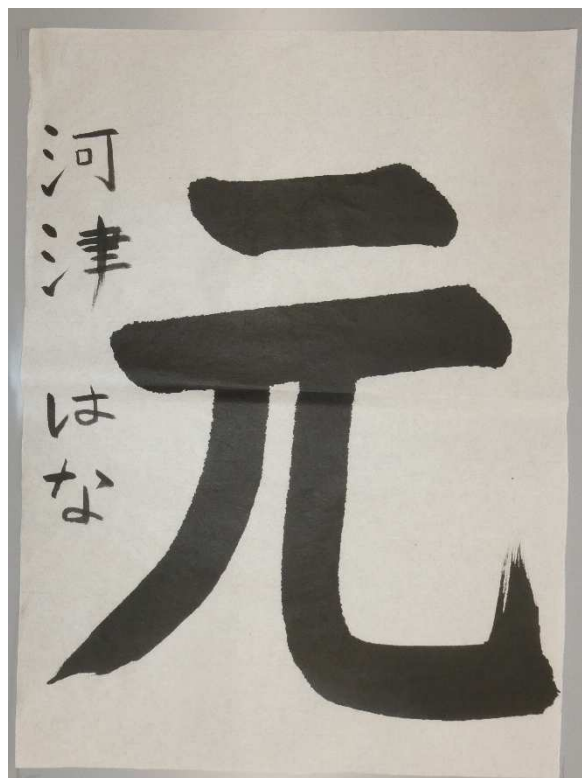 元
河津 はな